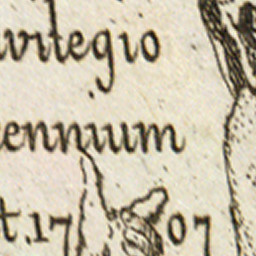 vilegio
ennium
t. 1707